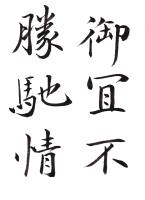 御宜不
勝馳情